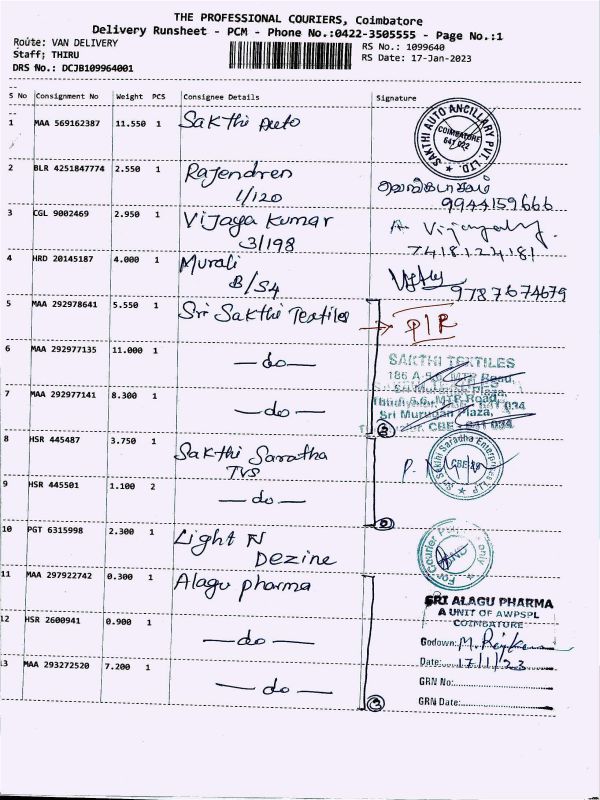 THE PROFESSIONAL COURIERS, Coimbatore
Delivery Runsheet - PCM - Phone No.:0422-3505555 - Page No.:1
Route: VAN DELIVERY
RS No.: 1099640
Staff; THIRU
RS Date: 17-Jan-2023
DRS No.: DCJB109964001
S No Consignment No Weight PCS Consignee Details Signature
1 MAA 569162387 11.550 1 Sakthi Auto
SAKTHI AUTO ANCILLARY PVT. LTD.
COIMBATORE
641 022
2 BLR 4251847774 2.550 1 Rajendren
1/120
9944159666
3 CGL 9002469 2.950 1 Vijaya Kumar
3/198
7418124181
4 HRD 20145187 4.000 1 Murali
B/54
9787674679
5 MAA 292978641 5.550 1 Sri Sakthi Textiles
P/R
6 MAA 292977135 11.000 1 -do-
SAKTHI TEXTILES
7 MAA 292977141 8.300 1 -do-
Sri Murugan Plaza,
3
8 HSR 445487 3.750 1 Sakthi Saratha
TVS
Sri Sakthi Saradha Enterprises LLP
9 HSR 445501 1.100 2 -do-
10 PGT 6315998 2.300 1 Light N
Dezine
For Courier only
11 MAA 297922742 0.300 1 Alagu pharma
SRI ALAGU PHARMA
A UNIT OF AWPSPL
COIMBATORE
12 HSR 2600941 0.900 1 -do-
Godown:
Date: 17/1/23
13 MAA 293272520 7.200 1 -do-
GRN No:
GRN Date:
3